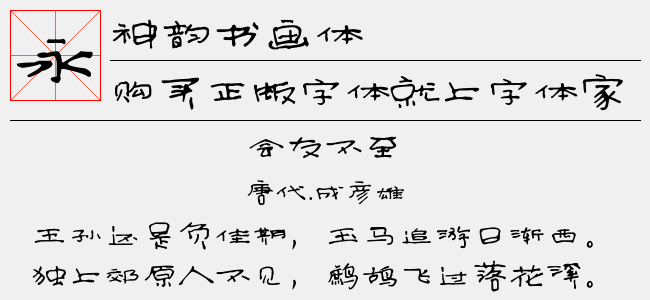 永
神韵书画体
购买正版字体就上字体家
会友不至
唐代.成彦雄
王孙还是负佳期，玉马追游日渐西。
独上郊原人不见，鹧鸪飞过落花溪。